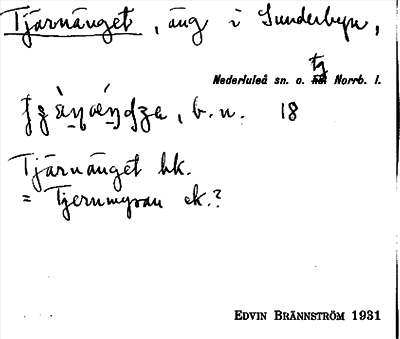 Tjärnänget, äng i Sunderbyn,
tg
Nederluleå sn. o. Norrb. l.
b. n. 18
Tjärnänget hk.
= Tjernmyran ek.?
EDVIN BRÄNNSTRÖM 1931